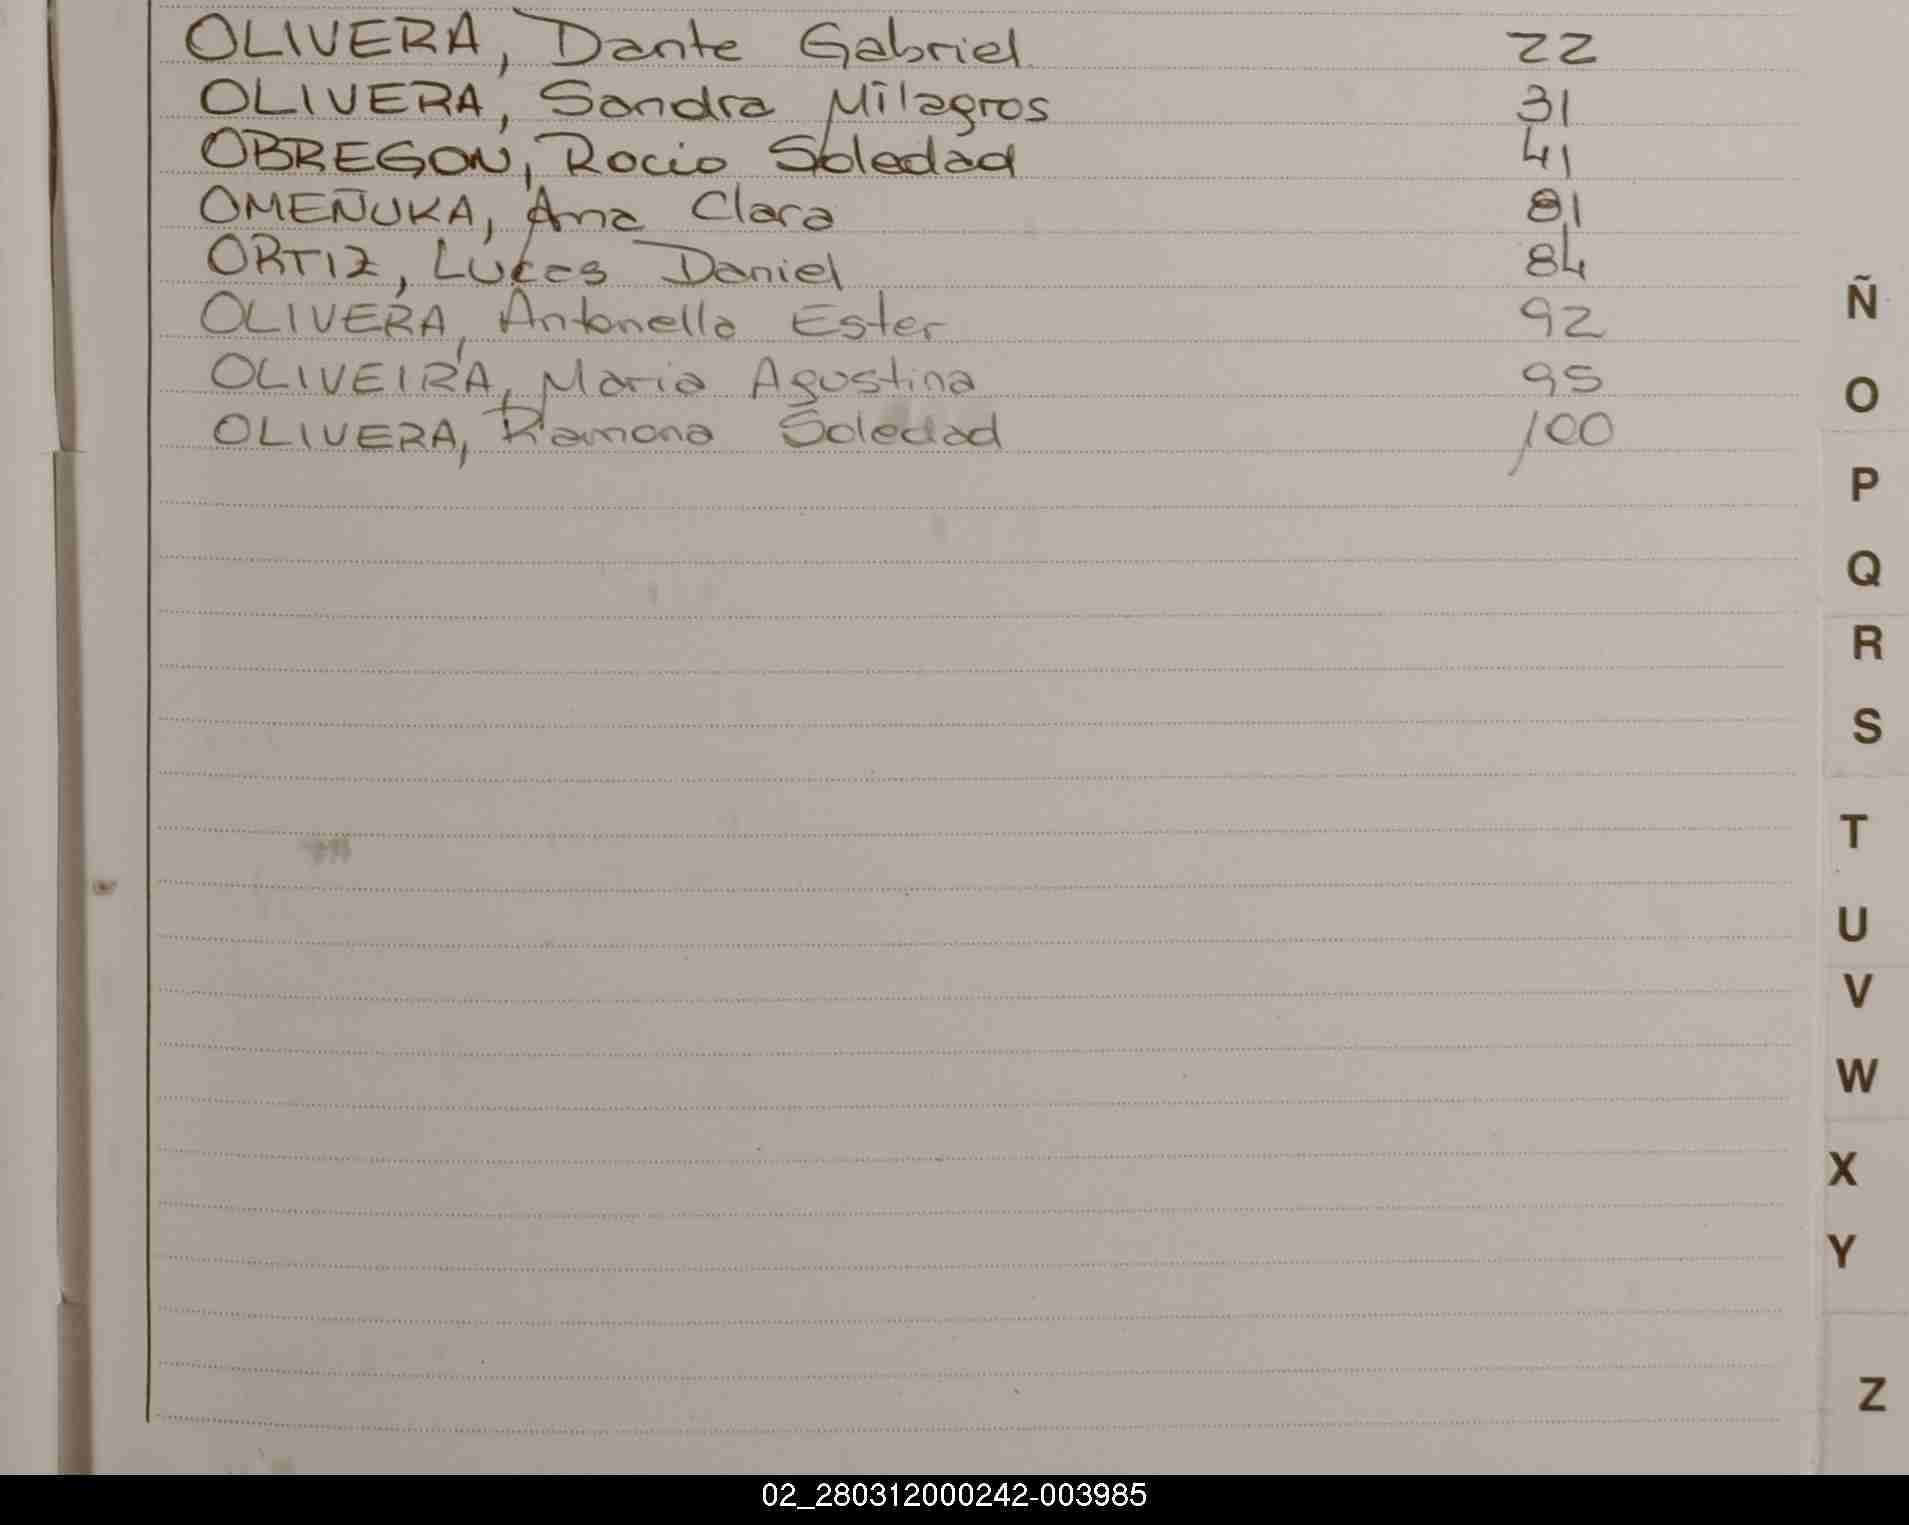 OLIVERA, Dante Gabriel 22
OLIVERA, Sandra Milagros 31
OBREGON, Rocio Soledad 41
OMEÑUKA, Ana Clara 81
ORTIZ, Lucas Daniel 84
OLIVERA, Antonella Ester 92
OLIVEIRA, Maria Agustina 95
OLIVERA, Ramona Soledad 100
Ñ
O
P
Q
R
S
T
U
V
W
X
Y
Z
02_280312000242-003985